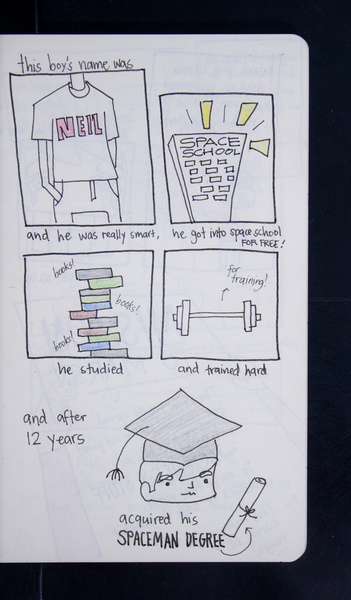 this boy's name was
NEIL
and he was really smart,
SPACE
SCHOOL
he got into space school
FOR FREE!
books!
books!
books!
he studied
for
training!
and trained hard
and after
12 years
acquired his
SPACEMAN DEGREE